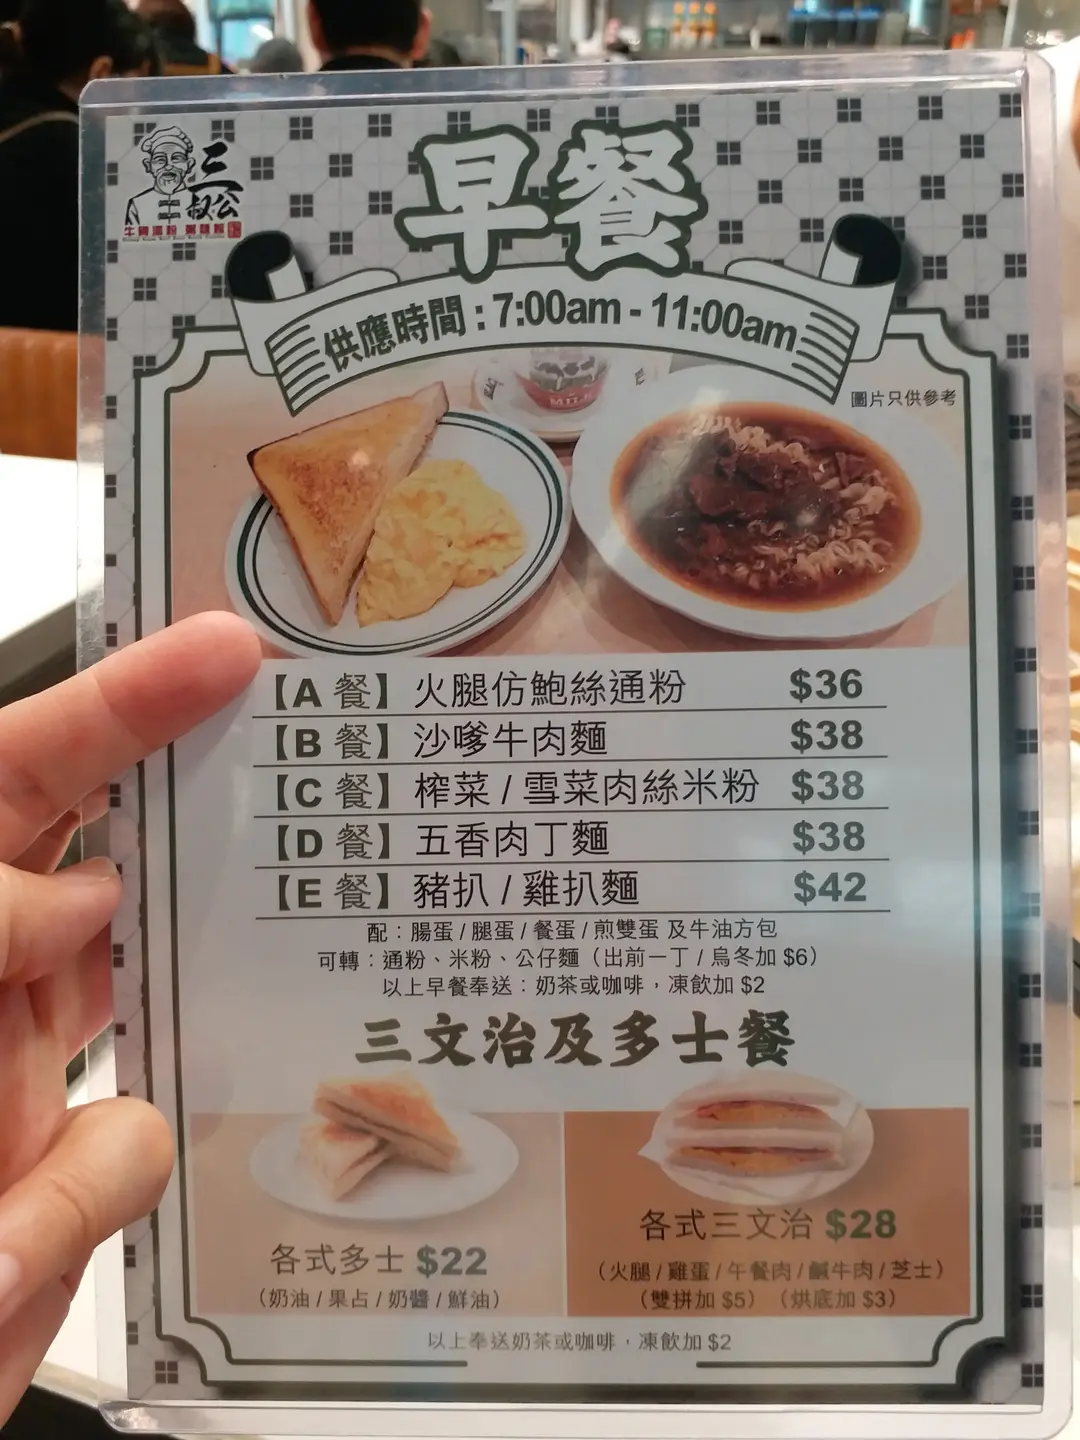 三叔公
早餐
供應時間：7:00am - 11:00am
圖片只供參考
MILK
【A 餐】火腿仿鮑絲通粉 $36
【B 餐】沙嗲牛肉麵 $38
【C 餐】榨菜 / 雪菜肉絲米粉 $38
【D 餐】五香肉丁麵 $38
【E 餐】豬扒 / 雞扒麵 $42
配：腸蛋 / 腿蛋 / 餐蛋 / 煎雙蛋 及牛油方包
可轉：通粉、米粉、公仔麵（出前一丁 / 烏冬加 $6）
以上早餐奉送：奶茶或咖啡，凍飲加 $2
三文治及多士餐
各式多士 $22
（奶油 / 果占 / 奶醬 / 鮮油）
各式三文治 $28
（火腿 / 雞蛋 / 午餐肉 / 鹹牛肉 / 芝士）
（雙拼加 $5）（烘底加 $3）
以上奉送奶茶或咖啡，凍飲加 $2